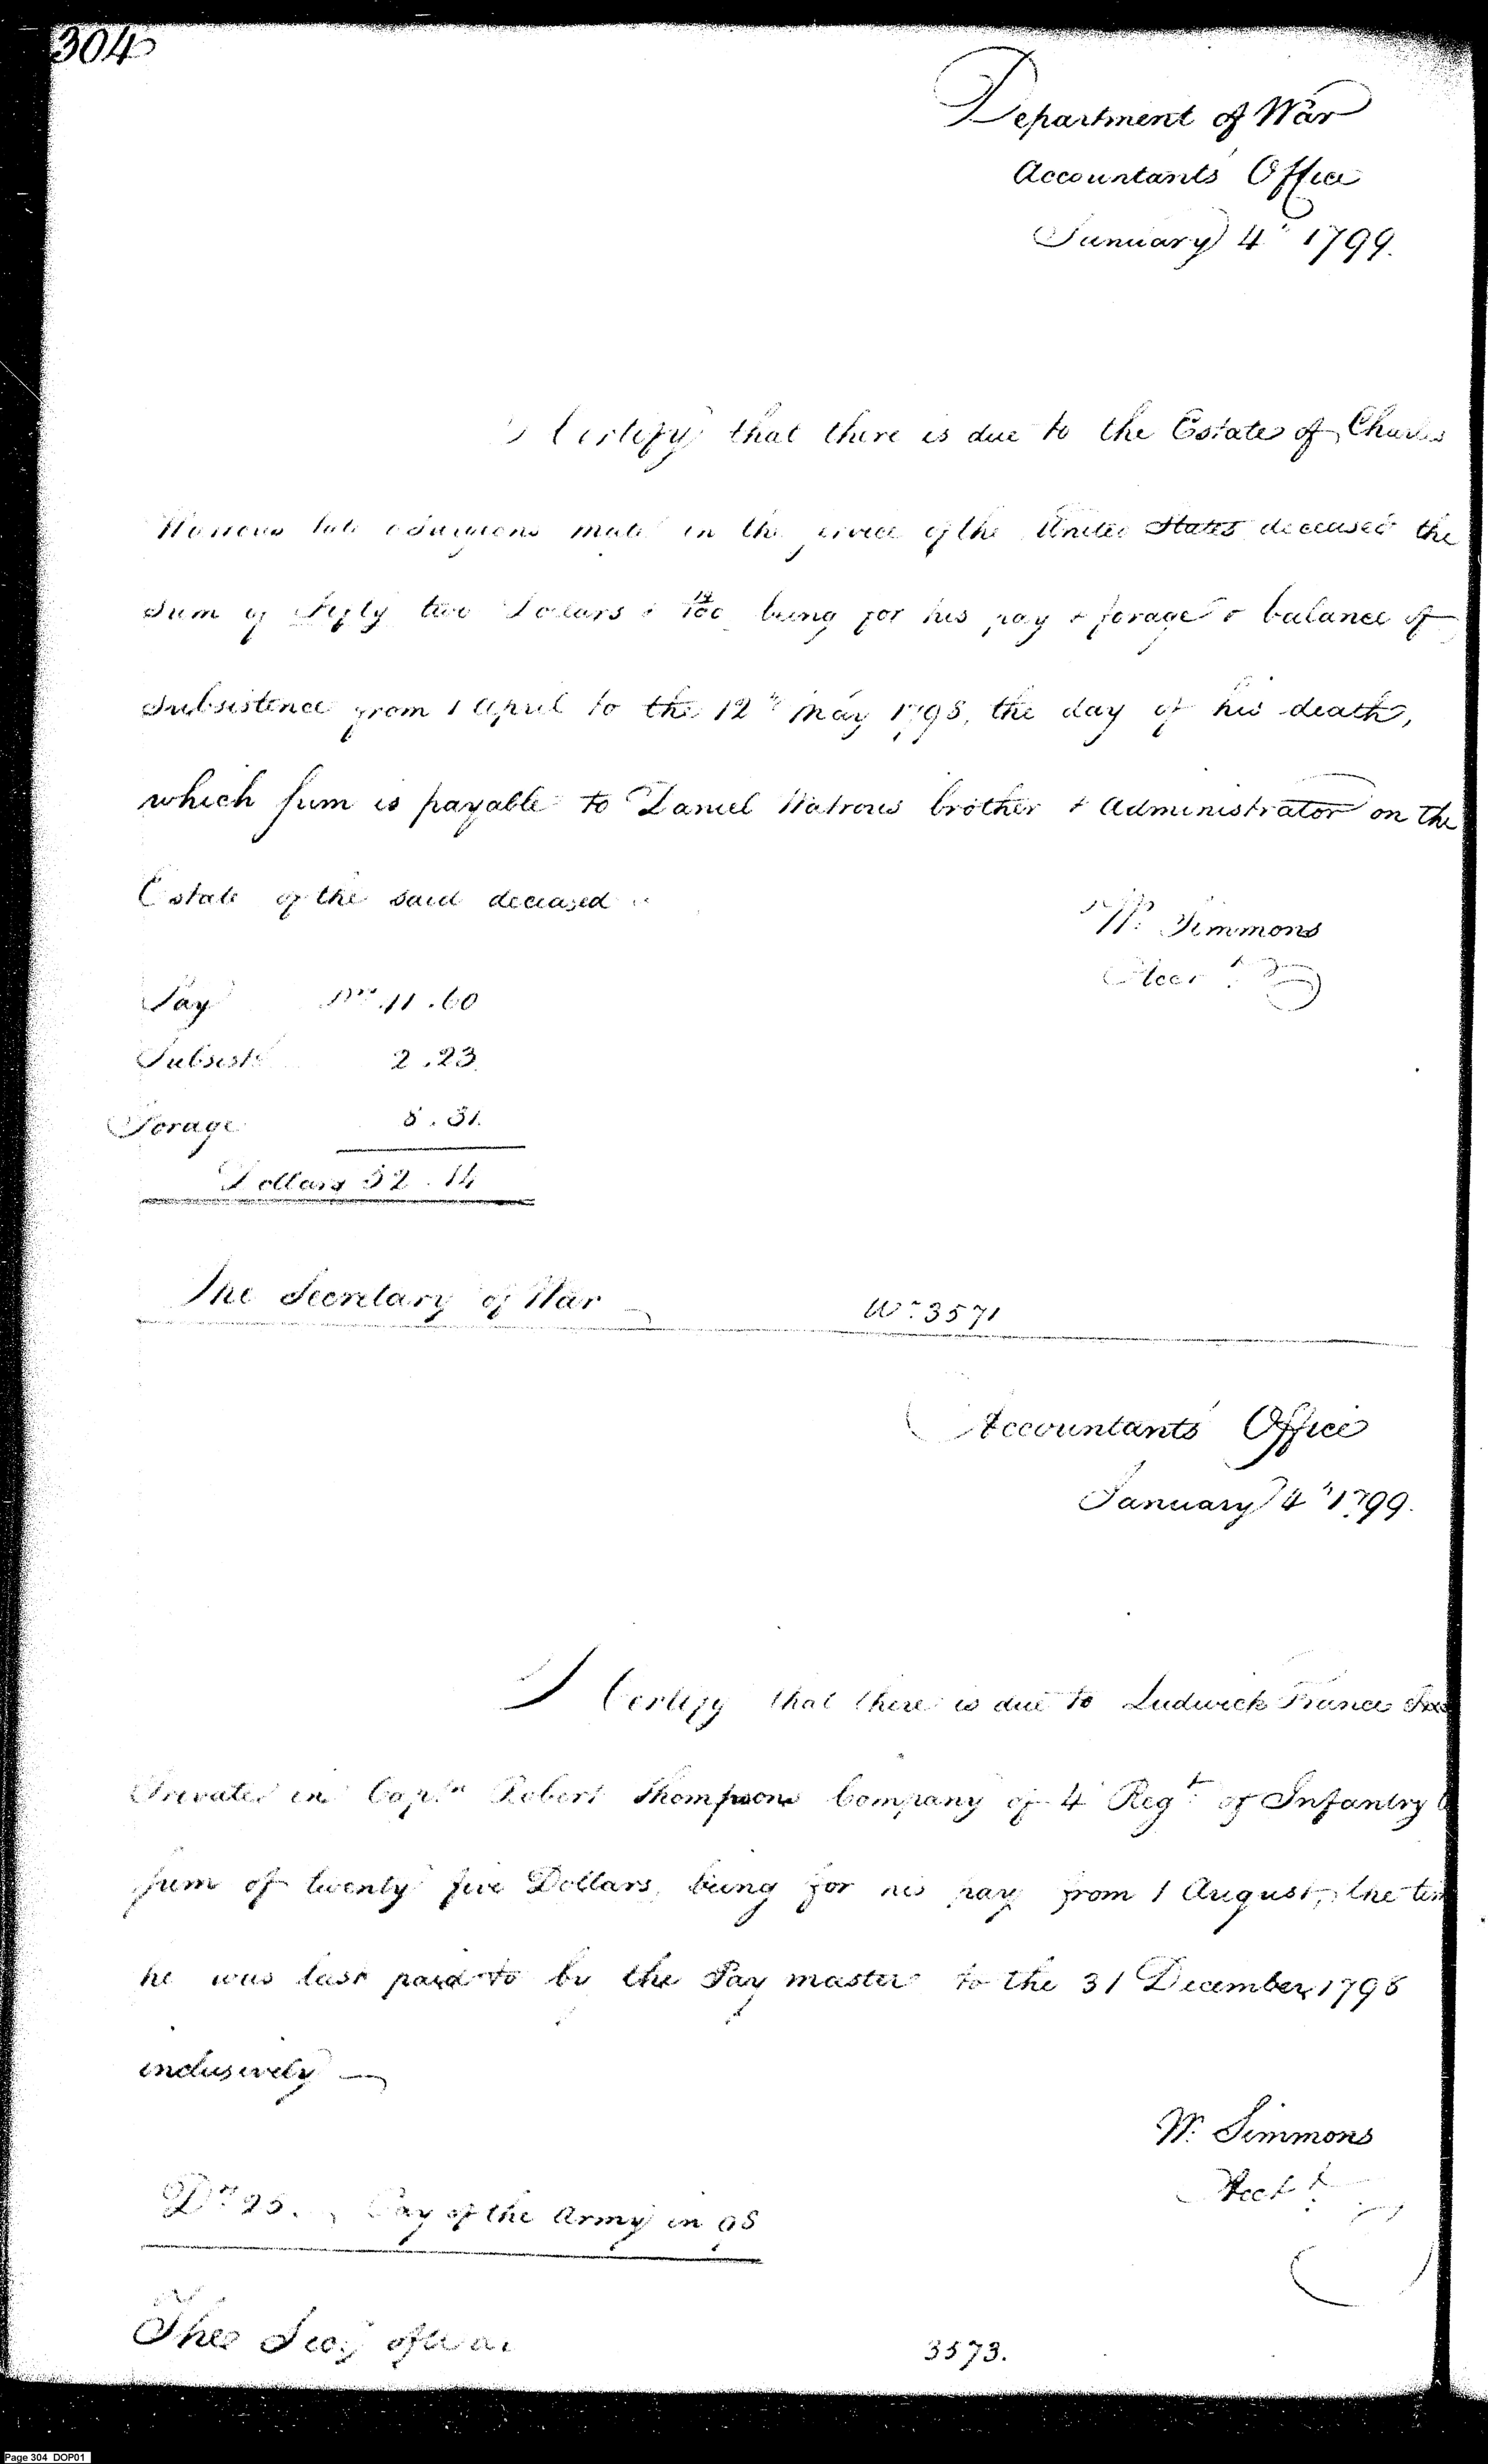 304
Department of War
Accountants' Office
January 4th 1799.
I Certify that there is due to the Estate of Charles
late Surgeons mate in the service of the United States deceased the
Sum of fifty two Dollars & 14/100 being for his pay & forage & balance of
Subsistence from 1 April to the 12th May 1798, the day of his death,
which sum is payable to Daniel Watrous brother & Administrator on the
Estate of the said deceased
W. Simmons
Acct
Pay Drs. 41.60
Subsist 2.23.
Forage 8.31.
Dollars 52.14
The Secretary of War
Wt. 3571
Accountants' Office
January 4th 1799.
I Certify that there is due to Ludwick France
Private in Captn Robert Thompsons Company of 4 Regt. of Infantry
sum of twenty five Dollars, being for his pay from 1 August, the
he was last paid to by the Pay master to the 31 December 1798
inclusively
W. Simmons
Acct
Drs 25. Pay of the Army in 98
The Secy of War
3573.
Page 304 DOP01